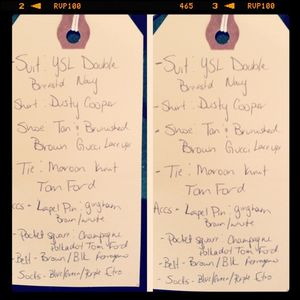 2 ◄ RVP100 465 3 ◄ RVP100
- Suit: YSL Double
Breastd Navy
- Shirt: Dusty Cooper
- Shoe: Tan & Brunushed
Brown Gucci Lace ups
- Tie: Maroon Knit
Tom Ford
Accs - Lapel Pin: gingham
Brown/white
- Pocket Square: Champagne
polkadot Tom Ford
- Belt - Brown/Blk Ferragamo
- Socks - Blue/Purple Etro
- Suit: YSL Double
Breastd Navy
- Shirt: Dusty Cooper
- Shoe: Tan & Brunushed
Brown Gucci Lace ups
- Tie: Maroon Knit
Tom Ford
Accs - Lapel Pin: gingham
Brown/white
- Pocket Square: Champagne
polkadot Tom Ford
- Belt - Brown/Blk Ferragamo
- Socks - Blue/Purple Etro